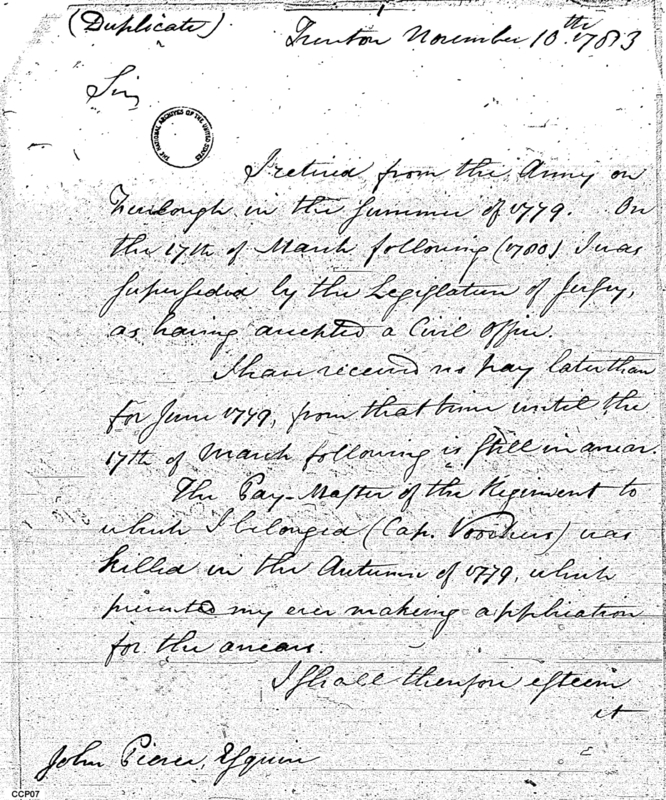 (Duplicate)
Trenton November 10th 1783
Sir
THE NATIONAL ARCHIVES OF THE UNITED STATES
I retired from the Army on
Furlough in the Summer of 1779. On
the 17th of March following (1780) I was
Superseded by the Legislature of Jersey,
as having accepted a Civil Office.
I have received no pay later than
for June 1779, from that time until the
17th of March following is Still in arrear.
The Pay-Master of the Regiment to
which I belonged (Cap. Voorhees) was
killed in the Autumn of 1779, which
prevented my ever making application
for the arrears.
I Shall therefore esteem
it
John Pierce, Esquire
CCP07